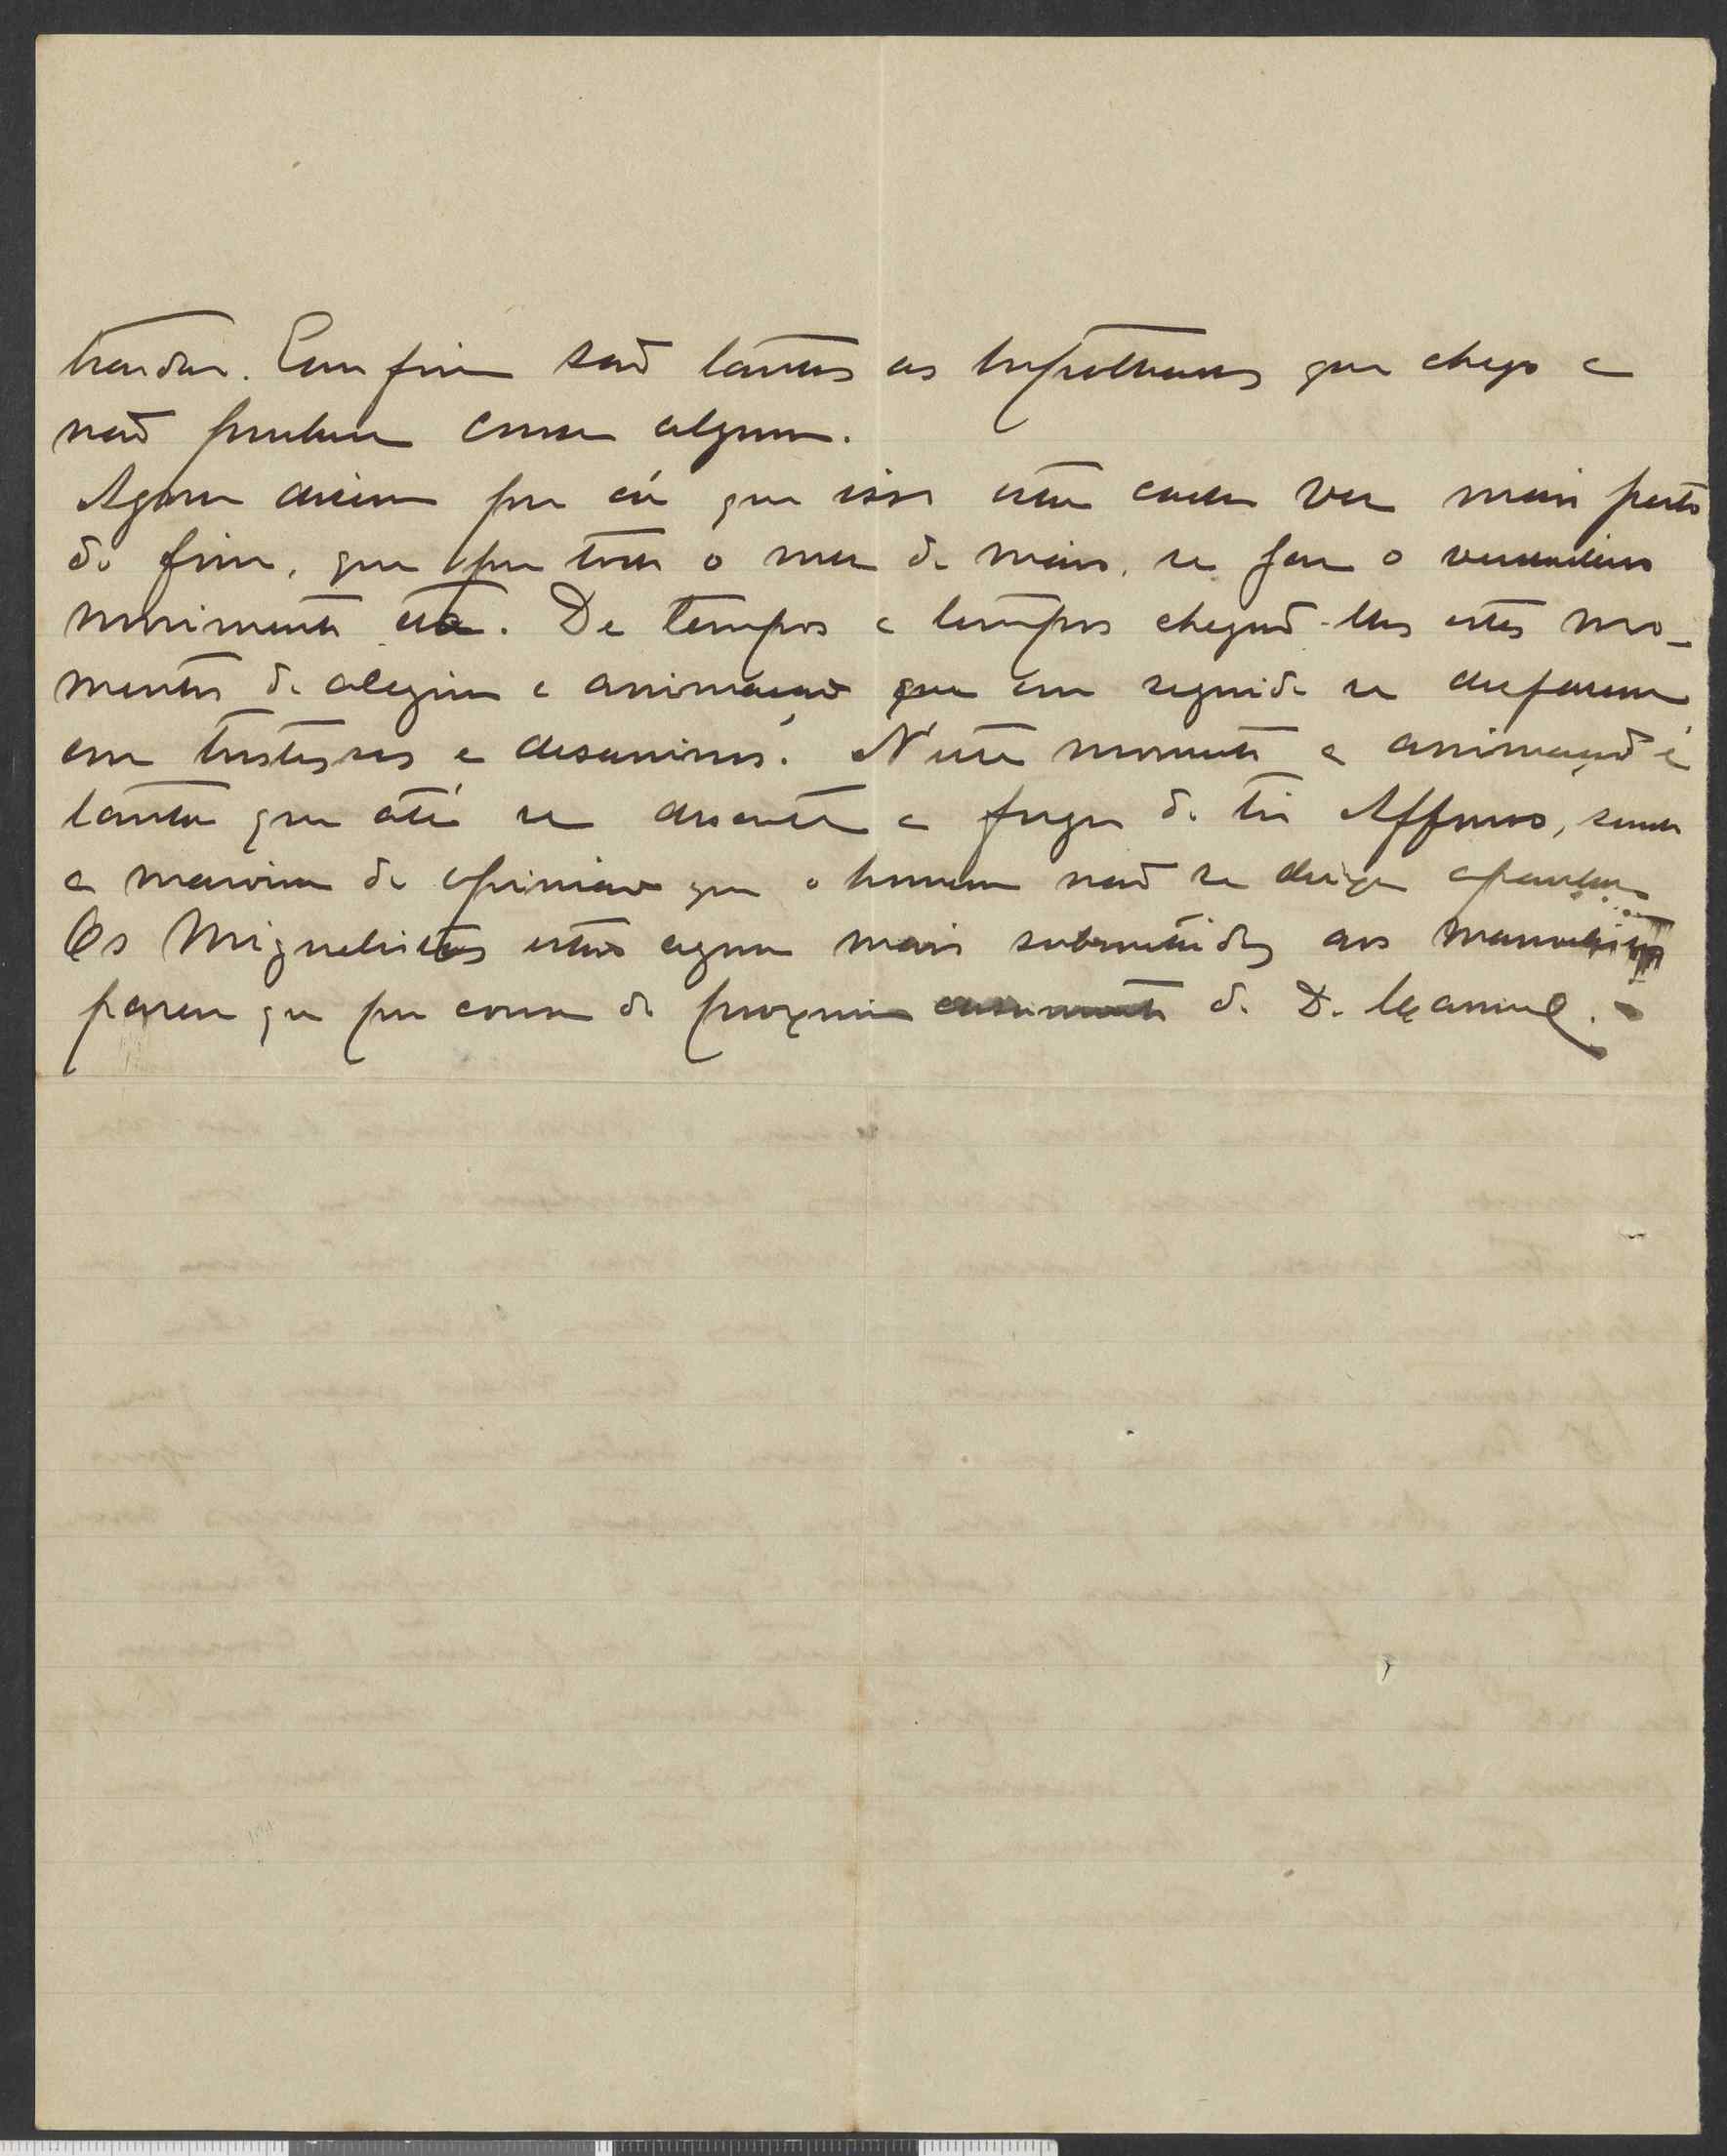 Em fim são tantas as hypotheses que chego a
não cousa alguma.
Agora dizem por cá que isso está cada vez mais perto
do fim, que por todo o mez de maio, se faz o verdadeiro
movimento etc. De tempos a tempos chegão-lhes estes mo-
mentos de alegria e animação que em seguida se desfazem
em tristezas e desanimos. N'este momento a animação é
tanta que até se discute a fuga do tio Affonso, sendo
a maioria de opinião que o homem não se deixa apanhar...
Os Miguelistas estão agora mais submettidos aos manuelistas
parece que por causa do proximo casamento de D. Manuel.